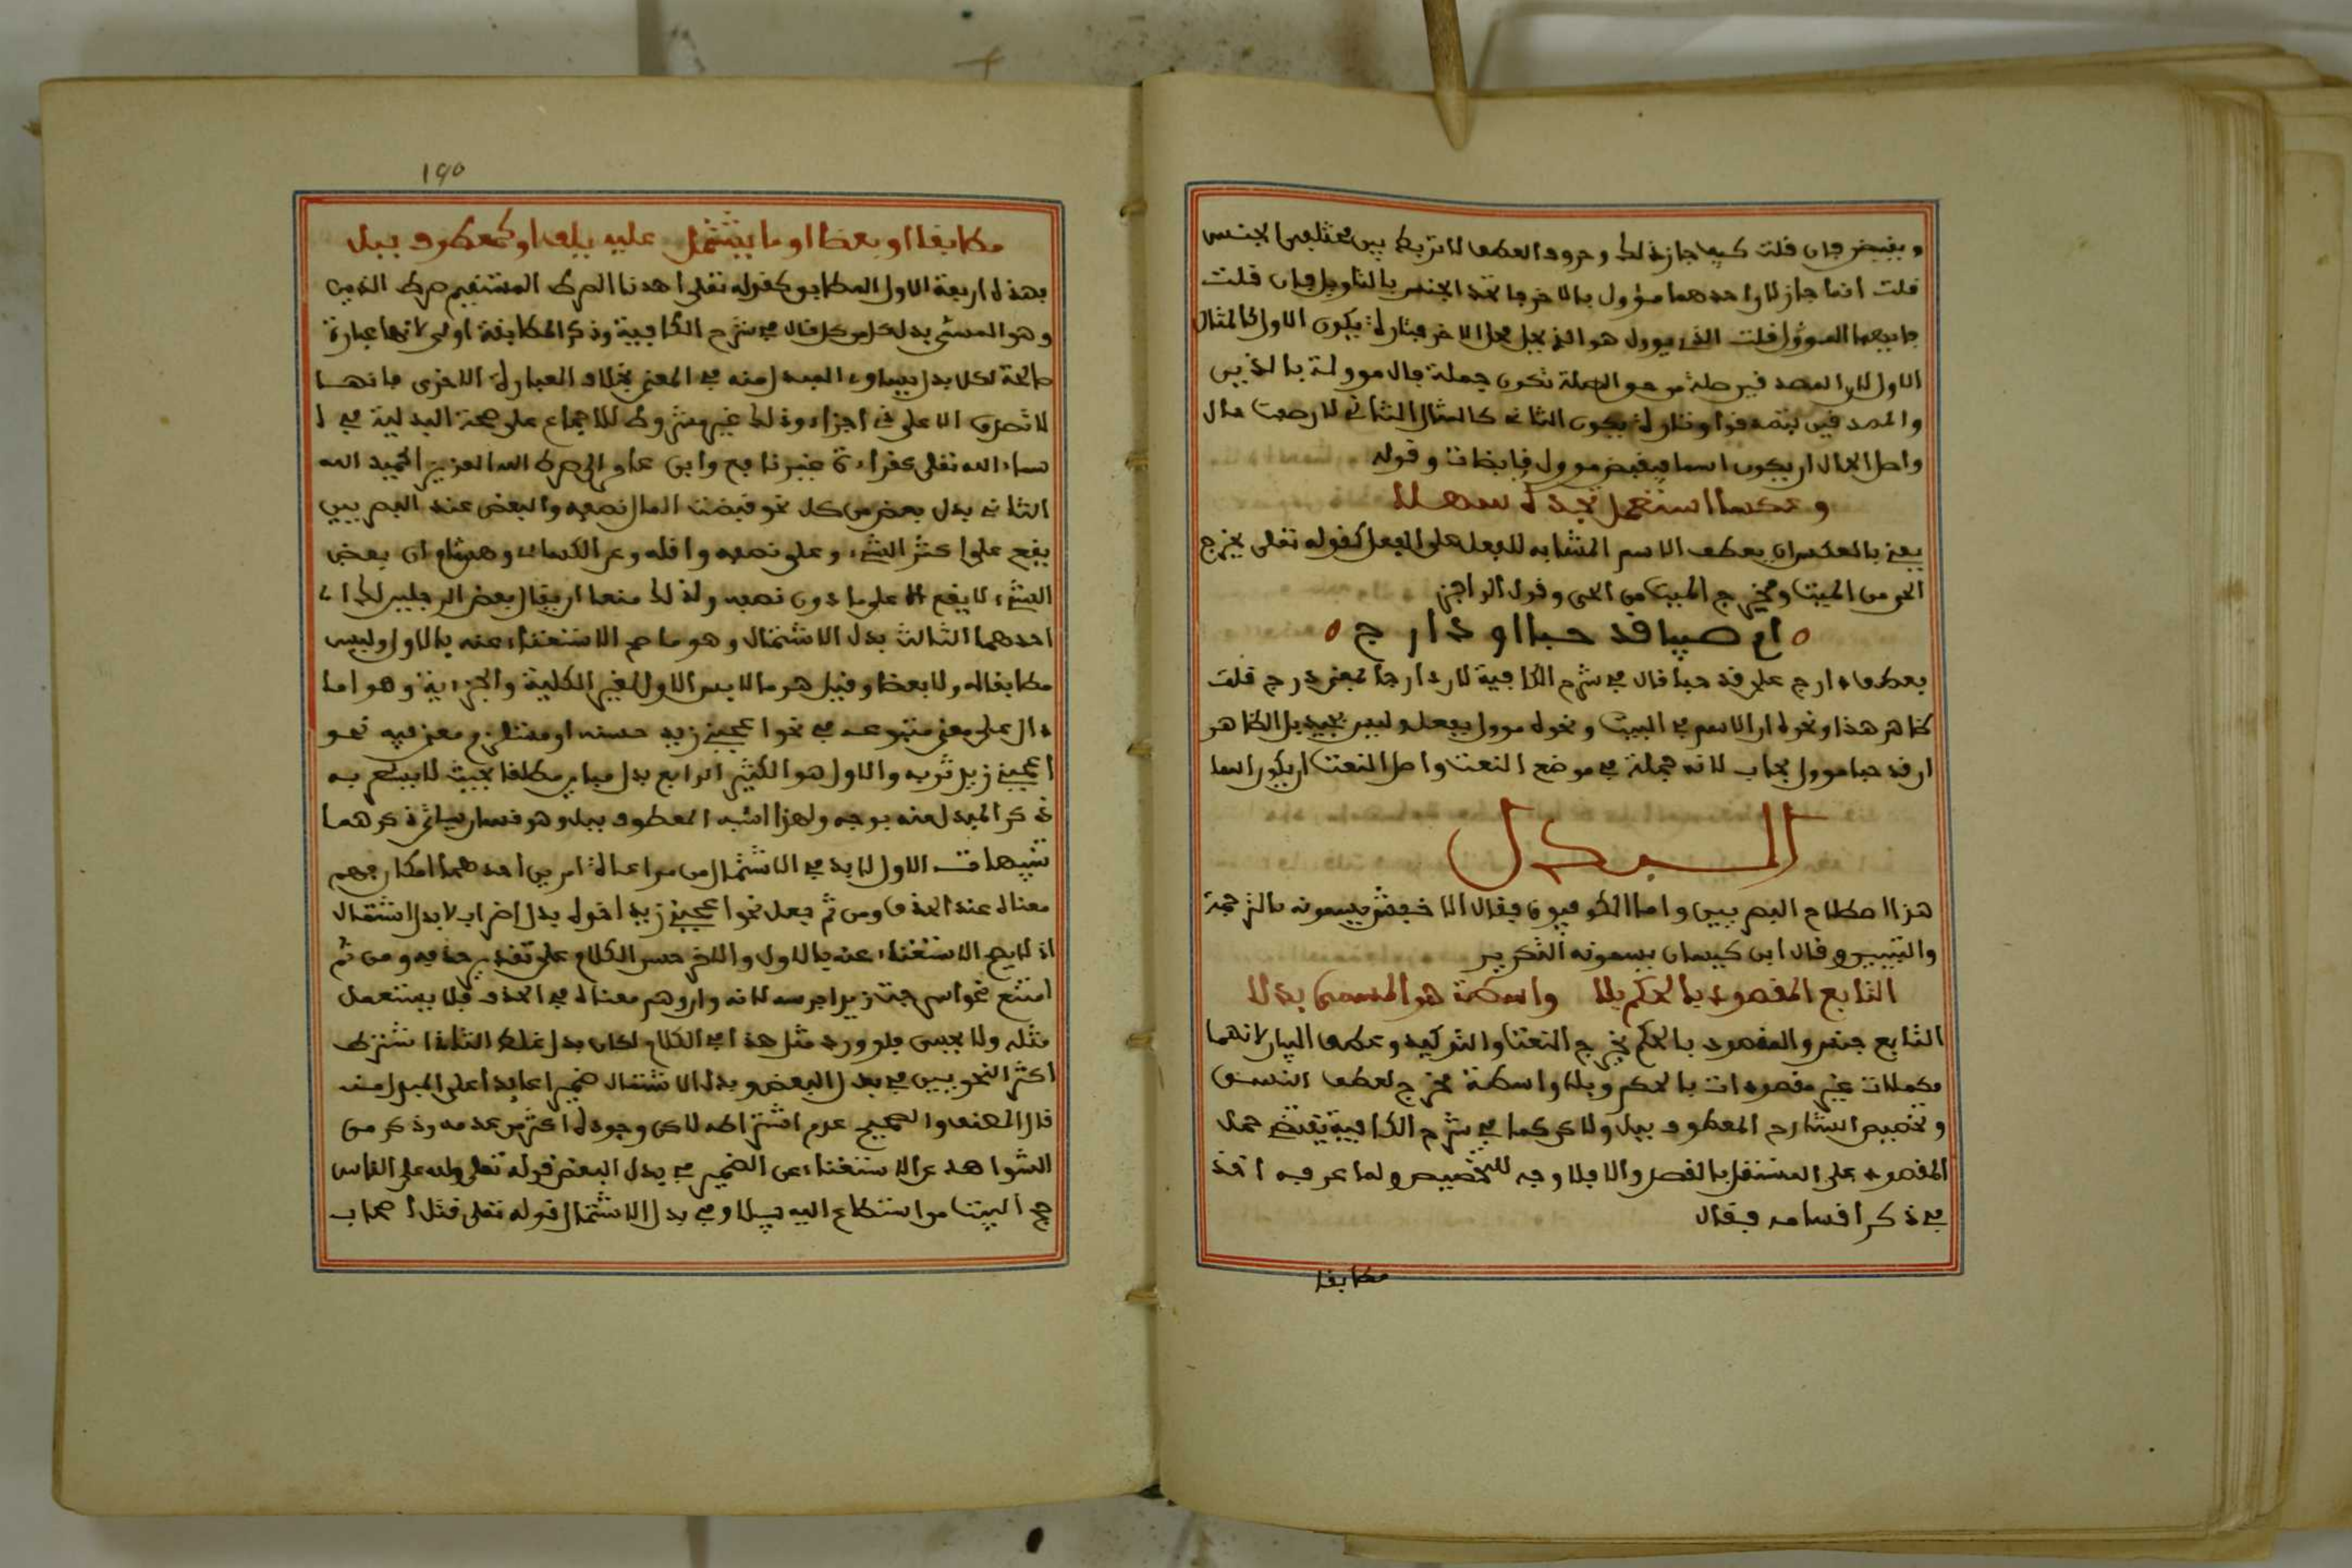 ويقبضن فان قلت كيف جاز ذلك وحروف العطف لا تربط بين مختلفي الجنس
قلت انما جاز لان احدهما مؤول بالاخر فاتحد الجنس بالتاويل فان قلت
فايهما المؤول قلت الذي يؤول هو الذي يحل محل الاخر فتارة يكون الاول كالمثال
الاول لان المصدقين صلة من حق الصلة تكون جملة فال موولة بالذين
والمصدقين بتصدقوا وتارة يكون الثاني كالمثال الثاني لان صفت حال
واصل الحال ان يكون اسما فيقبضن موول قابضات وقوله
وعكسا استعمل تجده سهلا
يعني بالعكس ان يعطف الاسم المشابه للفعل على الفعل كقوله تعلى يخرج
الحي من الميت ومخرج الميت من الحي وقول الراجز
ام صبيا قد حبا او دارج
بعطف دارج على قد حبا قال في شرح الكافية لان دارجا بمعنى درج قلت
ظاهر هذا ونحوه ان الاسم في البيت ونحوه موول بفعل وليس بجيد بل الظاهر
ان قد حبا موول بحاب لانه جملة في موضع النعت واصل النعت ان يكون اسما
البدل
هذا اصطلاح البصريين واما الكوفيون فقال الاخفش يسمونه بالترجمة
والتبيين وقال ابن كيسان يسمونه التكرير
التابع المقصود بالحكم بلا واسطة هو المسمى بدلا
التابع جنس والمقصود بالحكم يخرج النعت والتوكيد وعطف البيان لانهما
مكملات غير مقصودات بالحكم وبلا واسطة مخرج لعطف النسق
وتخصيص الشارح المعطوف ببل ولكن كما في شرح الكافية يقتضي حمل
المقصود على المستقل بالقصد والا فلا وجه للتخصيص ولما عرفه اخذ
في ذكر اقسامه فقال
مطابقا
190
مطابقا او بعضا او ما يشتمل عليه يلفى او كمعطوف ببل
فهذه اربعة الاول المطابق كقوله تعلى اهدنا الصرط المستقيم صرط الذين
وهو المسمى بدل كل من كل قال في شرح الكافية وذكر المطابقة اولى لانها عبارة
صالحة لكل بدل يساوي المبدل منه في المعنى بخلاف العبارة الاخرى فانها
لا تصدق الا على ذي اجزاء وذلك غير مشروط للاجماع على صحة البدلية في ا
سماء الله تعلى كقراءة غير نافع وابن عامر الى صرط العزيز الحميد الله
الثاني بدل بعض من كل نحو قبضت المال نصفه والبعض عند البصريين
يقع على اكثر الشيء وعلى نصفه واقله وعن الكسائي وهشام ان بعض
الشيء لا يقع الا على ما دون نصفه ولذلك منعا ان يقال بعض الرجلين لك اي
احدهما الثالث بدل الاشتمال وهو ما صح الاستغناء عنه بالاول وليس
مطابقا له ولا بعضا وقيل هو ما لابس الاول بغير الكلية والجزءية وهو اما
دال على معنى متبوعه في نحو اعجبني زيد حسنه او مستلزم معنى فيه نحو
اعجبني زيد ثوبه والاول هو الكثير الرابع بدل مباين مطلقا بحيث لا يشعر به
ذكر المبدل منه بوجه ولهذا اشبه المعطوف ببل وهو قسمان سياتي ذكرهما
تنبيهات الاول لا بد في الاشتمال من مراعاة امرين احدهما امكان فهم
معناه عند الحذف ومن ثم جعل نحو اعجبني زيد اخوه بدل اضراب لا بدل اشتمال
اذ لا يصح الاستغناء عنه بالاول والاخر حسن الكلام على تقدير حذفه ومن ثم
امتنع نحو اسرجت زيدا فرسه لانه وان فهم معناه في الحذف فلا يستعمل
مثله ولا يحسن فلو ورد مثل هذا في الكلام لكان بدل غلط الثاني اشترط
اكثر النحويين في بدل البعض وبدل الاشتمال ضميرا عايدا على المبدل منه
قال المصنف والصحيح عدم اشتراطه لاكن وجوده اكثر من عدمه وذكر من
الشواهد على الاستغناء عن الضمير في بدل البعض قوله تعلى ولله على الناس
حج البيت من استطاع اليه سبيلا وفي بدل الاشتمال قوله تعلى قتل اصحاب